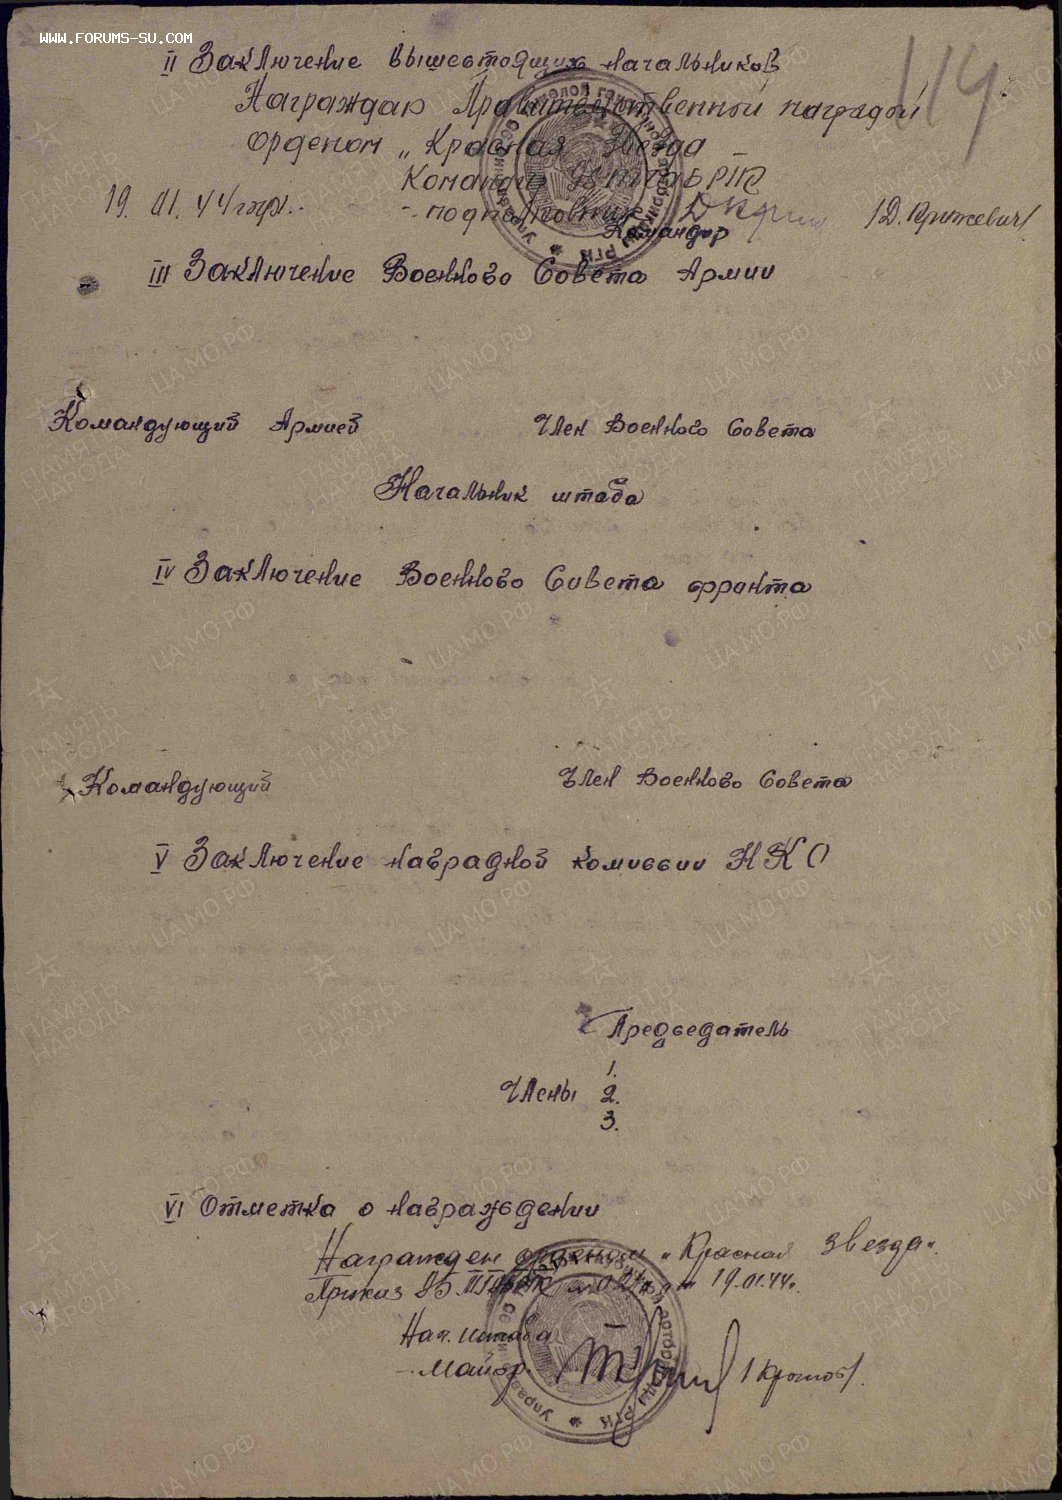 www.forums-su.com
114
II Заключение вышестоящих начальников
Награждаю Правительственной наградой
орденом „Красная Звезда
Командир
19. 01. 44 года.
подполковник /Д. Крижевич/
Командир
III Заключение Военного Совета Армии
Командующий Армией Член Военного Совета
Начальник штаба
IV Заключение Военного Совета фронта
Командующий Член Военного Совета
V Заключение наградной комиссии НКО
Председатель
1.
Члены 2.
3.
VI Отметка о награждении
Награжден орденом „Красная Звезда“.
Приказ 19.01.44г.
Нач. штаба
Майор.
ПАМЯТЬ НАРОДА
ЦА МО РФ